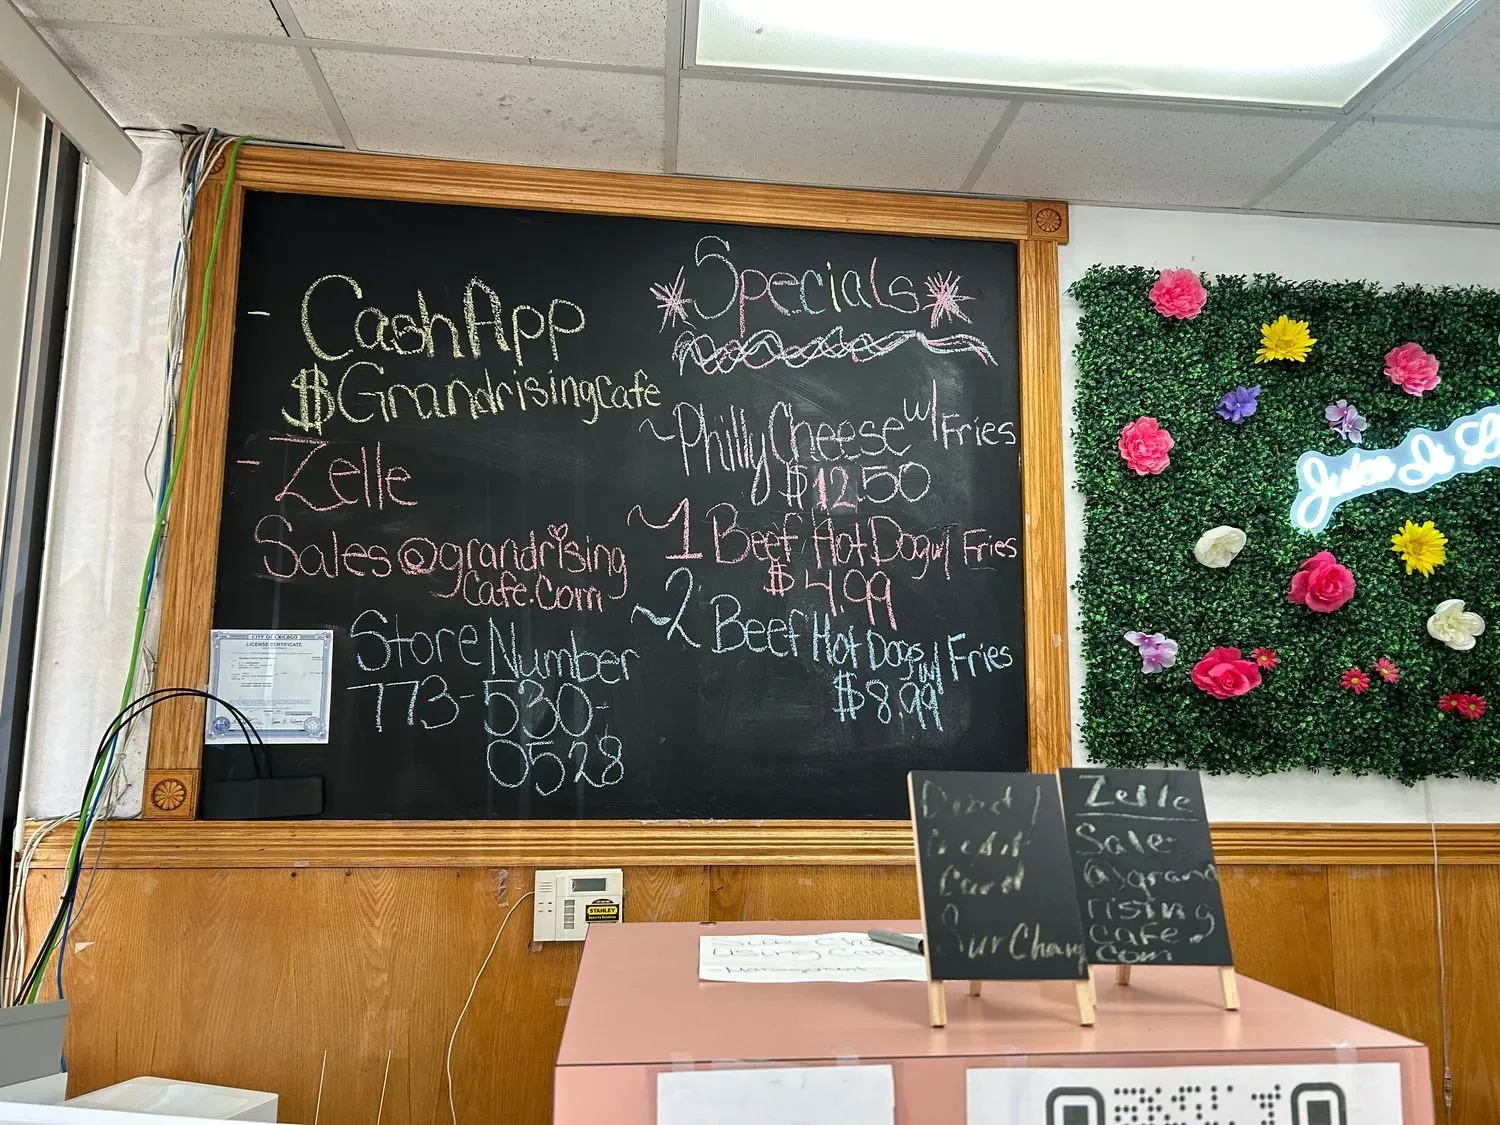 - CashApp
$Grandrisingcafe
- Zelle
Sales@grandrising
cafe.com
Store Number
773-530-
0528
Specials
~Philly Cheese w/ Fries
$12.50
~1 Beef Hot Dog w/ Fries
$4.99
~2 Beef Hot Dogs w/ Fries
$8.99
CITY OF CHICAGO
LICENSE CERTIFICATE
Juice Is
STANLEY
Debit/
Credit
Card
SurCharg
Zelle
Sale
@grand
rising
cafe.
com
Sur Ch
Using Car
-Management